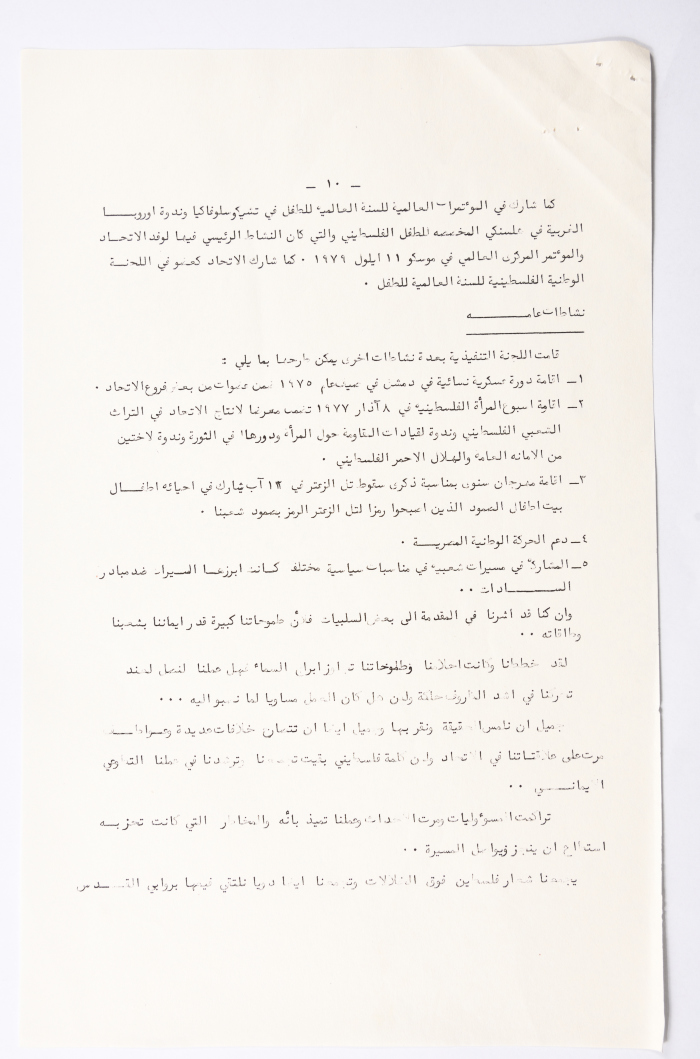 – ١٠ –
كما شارك في المؤتمرات العالمية للسنة العالمية للطفل في تشيكوسلوفاكيا وندوة اوروبـــا
الغربية في هلسنكي المخصصه للطفل الفلسطيني والتي كان النشاط الرئيسي فيها لوفد الاتحـاد
والمؤتمر المركزى العالمي في موسكو ١١ ايلول ١٩٧٩ ٠ كما شارك الاتحاد كعضو في اللجنـة
الوطنية الفلسطينية للسنة العالمية للطفل ٠
نشاطات عامـــــــه
قامت اللجنة التنفيذية بعدة نشاطات اخرى يمكن طرحها بما يلي :
١ــ اقامة دورة عسكرية نسائية في دمشق في صيف عام ١٩٧٥ ضمن عضوات من بعض فروع الاتحاد ٠
٢ــ اقامة اسبوع المرأة الفلسطينيه في ٨ آذار ١٩٧٧ تضمن معرضا لانتاج الاتحاد في التراث
الشعبي الفلسطيني وندوة لقيادات المقاومة حول المرأه ودورها في الثورة وندوة لاختين
من الامانه العامه والهلال الاحمر الفلسطيني ٠
٣ــ اقامة مهرجان سنوى بمناسبة ذكرى سقوط تل الزعتر في ١٢ آب شارك في احيائه اطفــال
بيت اطفال الصمود الذين اصبحوا رمزا لتل الزعتر الرمز بصمود شعبنا ٠
٤ــ دعم الحركة الوطنية المصريـــة ٠
٥ــ المشاركه في مسيرات شعبيه في مناسبات سياسية مختلفه كـانت ابرزها المسيرات ضد مبادرة
الســــــادات ٠٠
وان كنا قد أشرنا في المقدمة الى بعض السلبيات فلأن طموحاتنا كبيرة قدر ايماننا بشعبنا
وطاقاته ٠٠
لقد خططنا وكانت احلامنا وطموحاتنا تجاوز ابراج السماء فهل عملنا لنصل لهذه
تحركنا في اشد الظروف حلكة ولكن هل كان العمل مساويا لما نصبو اليه ٠٠٠
جميل ان نلمس الحقيقة ونقر بها وجميل ايضا ان خلافات عديدة وعواطـــف
مرت على علاقاتنا في الاتحاد ولكن كلمة فلسطيني بقيت تجمعنا وترشدنا في عملنا التطوعي
الايمانـــي ٠٠
تراكمت المسؤوليات ومرت الاحداث وعملنا تميز بأنه والمخاطر التي كانت تحز بـه
استطاع ان يقفز ويواصل المسيرة ٠٠
يجمعنا شعار فلسطين فوق الخلافات وتجمعنا ايضا دربا نلتقي فيها بروابي القـــدس